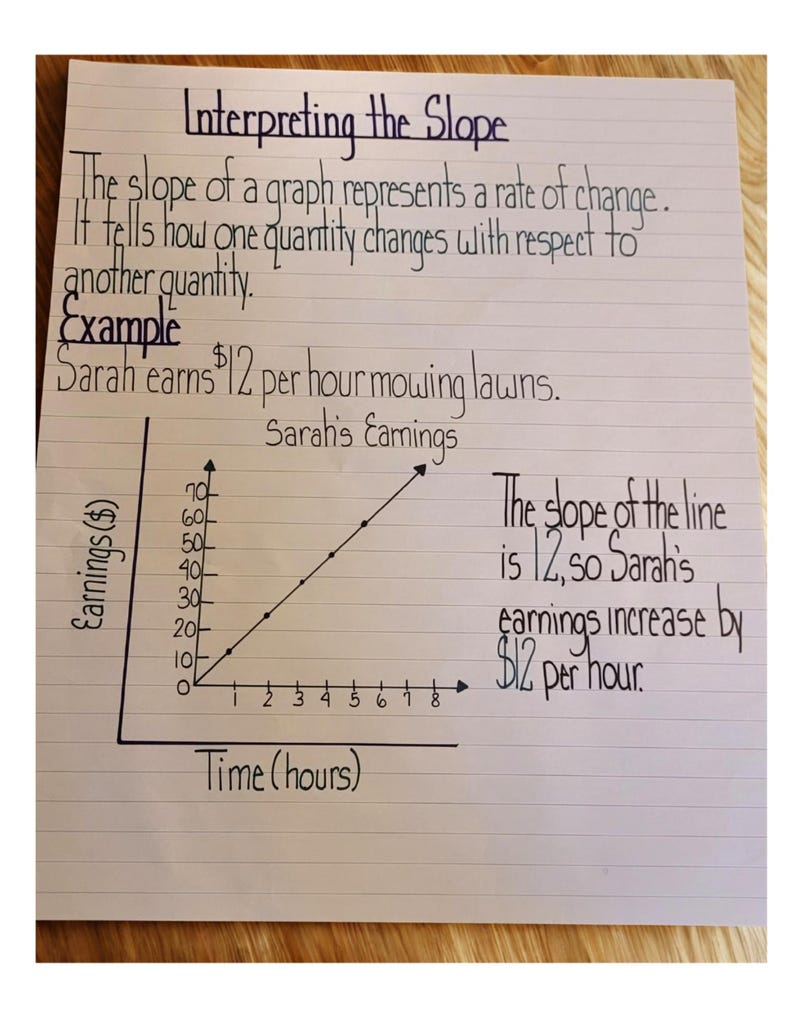 Interpreting the Slope
The slope of a graph represents a rate of change.
It tells how one quantity changes with respect to
another quantity.
Example
Sarah earns $12 per hour mowing lawns.
Sarah's Earnings
Earnings($)
70
60
50
40
30
20
10
0
1 2 3 4 5 6 7 8
Time (hours)
The slope of the line
is 12, so Sarah's
earnings increase by
$12 per hour.